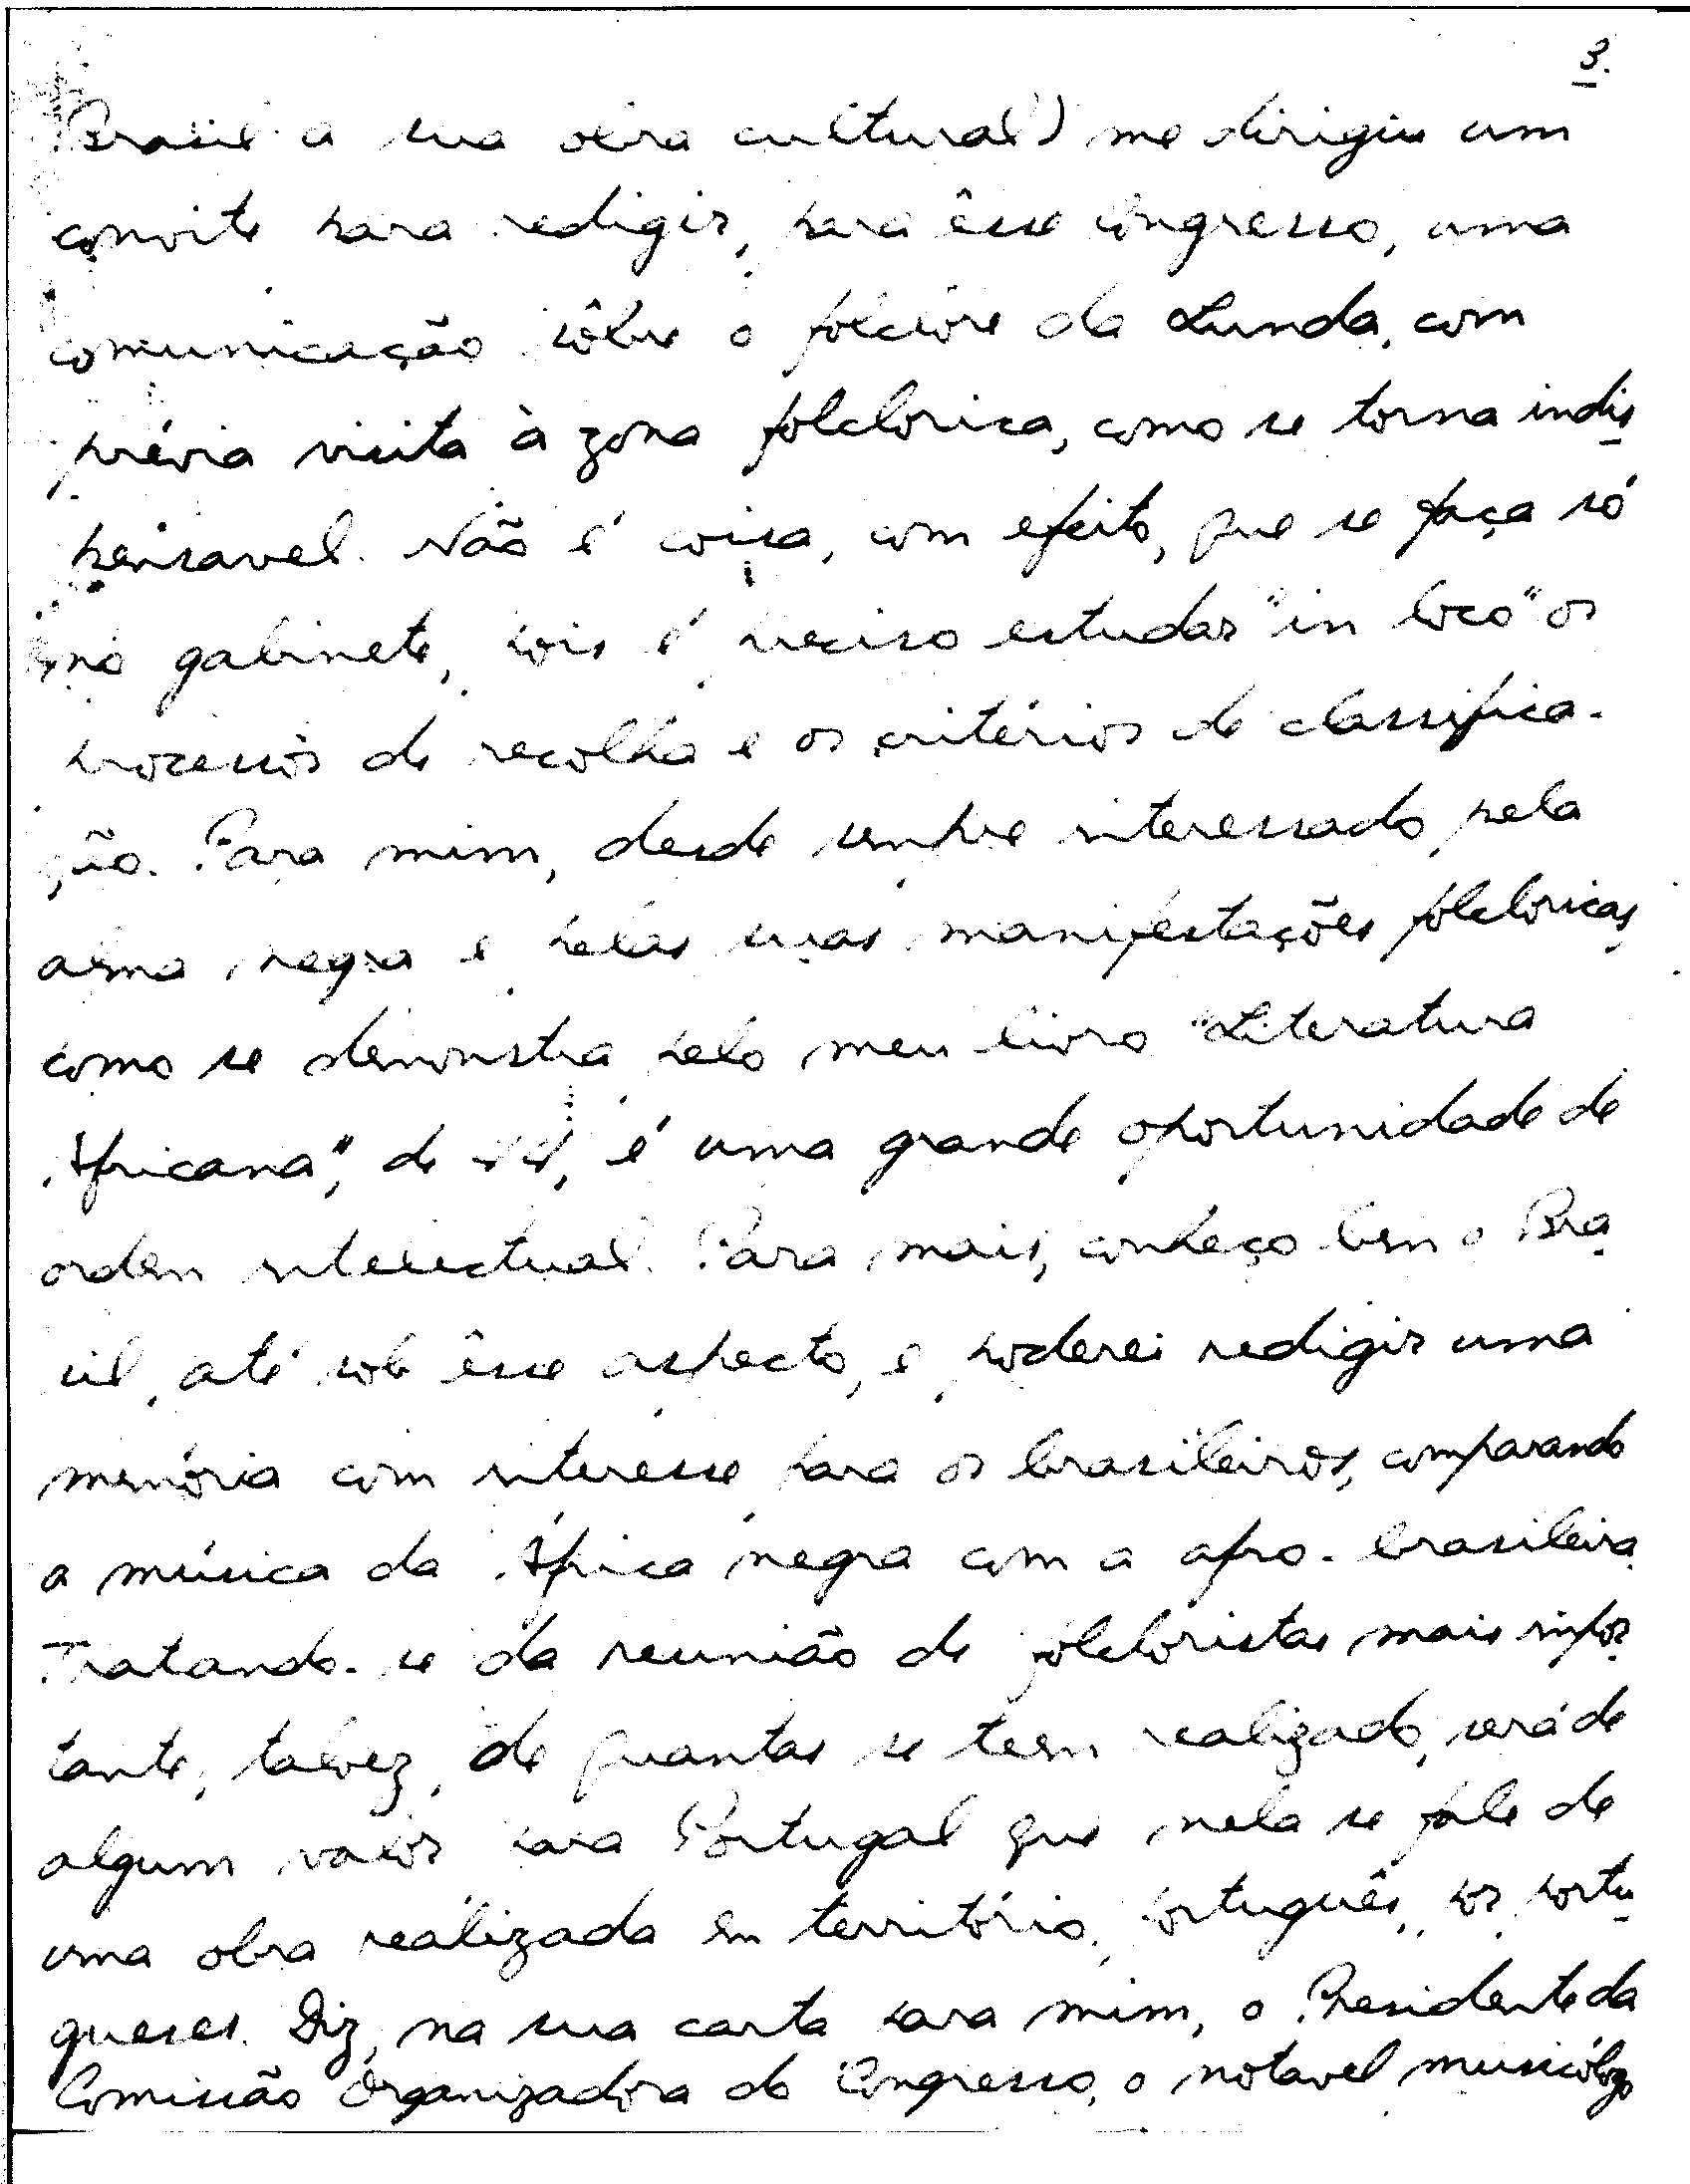 3.
Brasil a sua obra cultural) me dirigiu um
convite para redigir, para êsse Congresso, uma
comunicação sôbre o folclore da Lunda, com
prévia visita à zona folclorica, como se torna indis
pensavel. Não é coisa, com efeito, que se faça só
no gabinete, pois é preciso estudar "in loco" os
processos de recolha e os critérios de classifica-
ção. Para mim, desde sempre interessado pela
alma negra e pelas suas manifestações folcloricas,
como se demonstra pelo meu livro "Literatura
Africana", de 44, é uma grande oportunidade de
ordem intelectual. Para mais, conheço bem o Bra
sil, até sob êsse aspecto, e poderei redigir uma
memória com interesse para os brasileiros, comparando
a música da Africa negra com a afro-brasileira.
Tratando-se da reunião de folcloristas mais impor
tante, talvez, de quantas se tem realizado, será de
algum valor para Portugal que nela se fale de
uma obra realizada em território português, por portu
gueses. Diz, na sua carta para mim, o Presidente da
Comissão Organizadora do Congresso, o notavel musicólogo